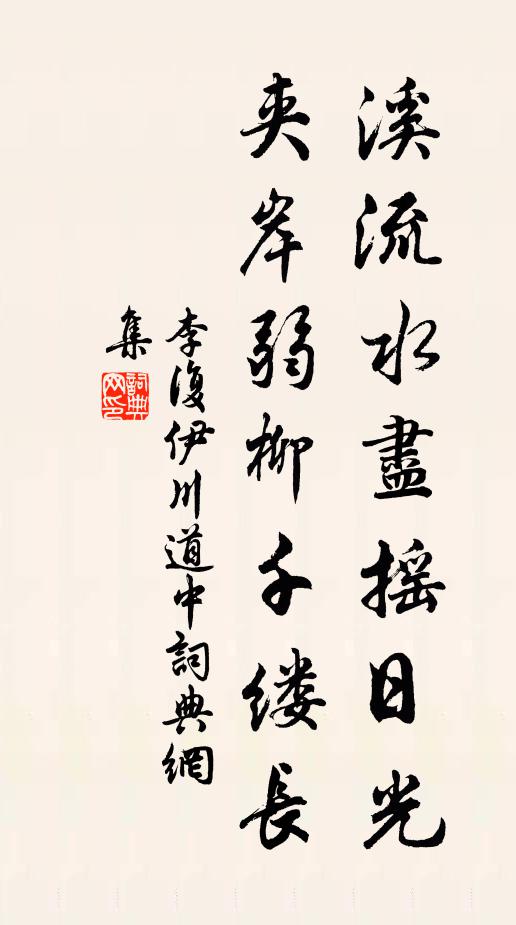 溪流水盡摇日光
夹岸弱柳千缕長
李復伊川道中詞典網
集
詞典
网印